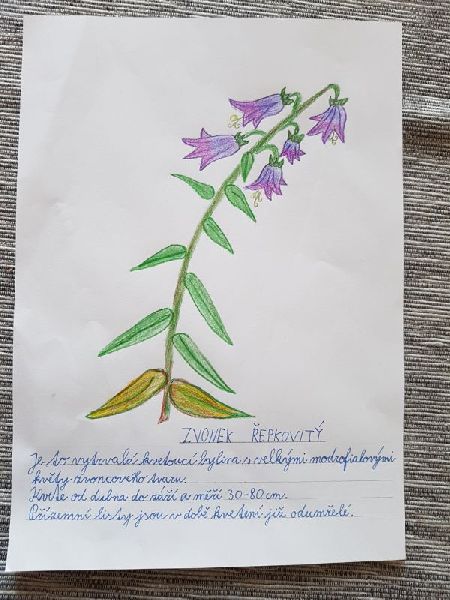 ZVONEK ŘEPKOVITÝ
Je to vytrvalá kvetoucí bylina s velkými modrofialovými
květy zvoncového tvaru.
Kvete od dubna do září a měří 30-80 cm.
Přízemní listy jsou v době kvetení již odumřelé.